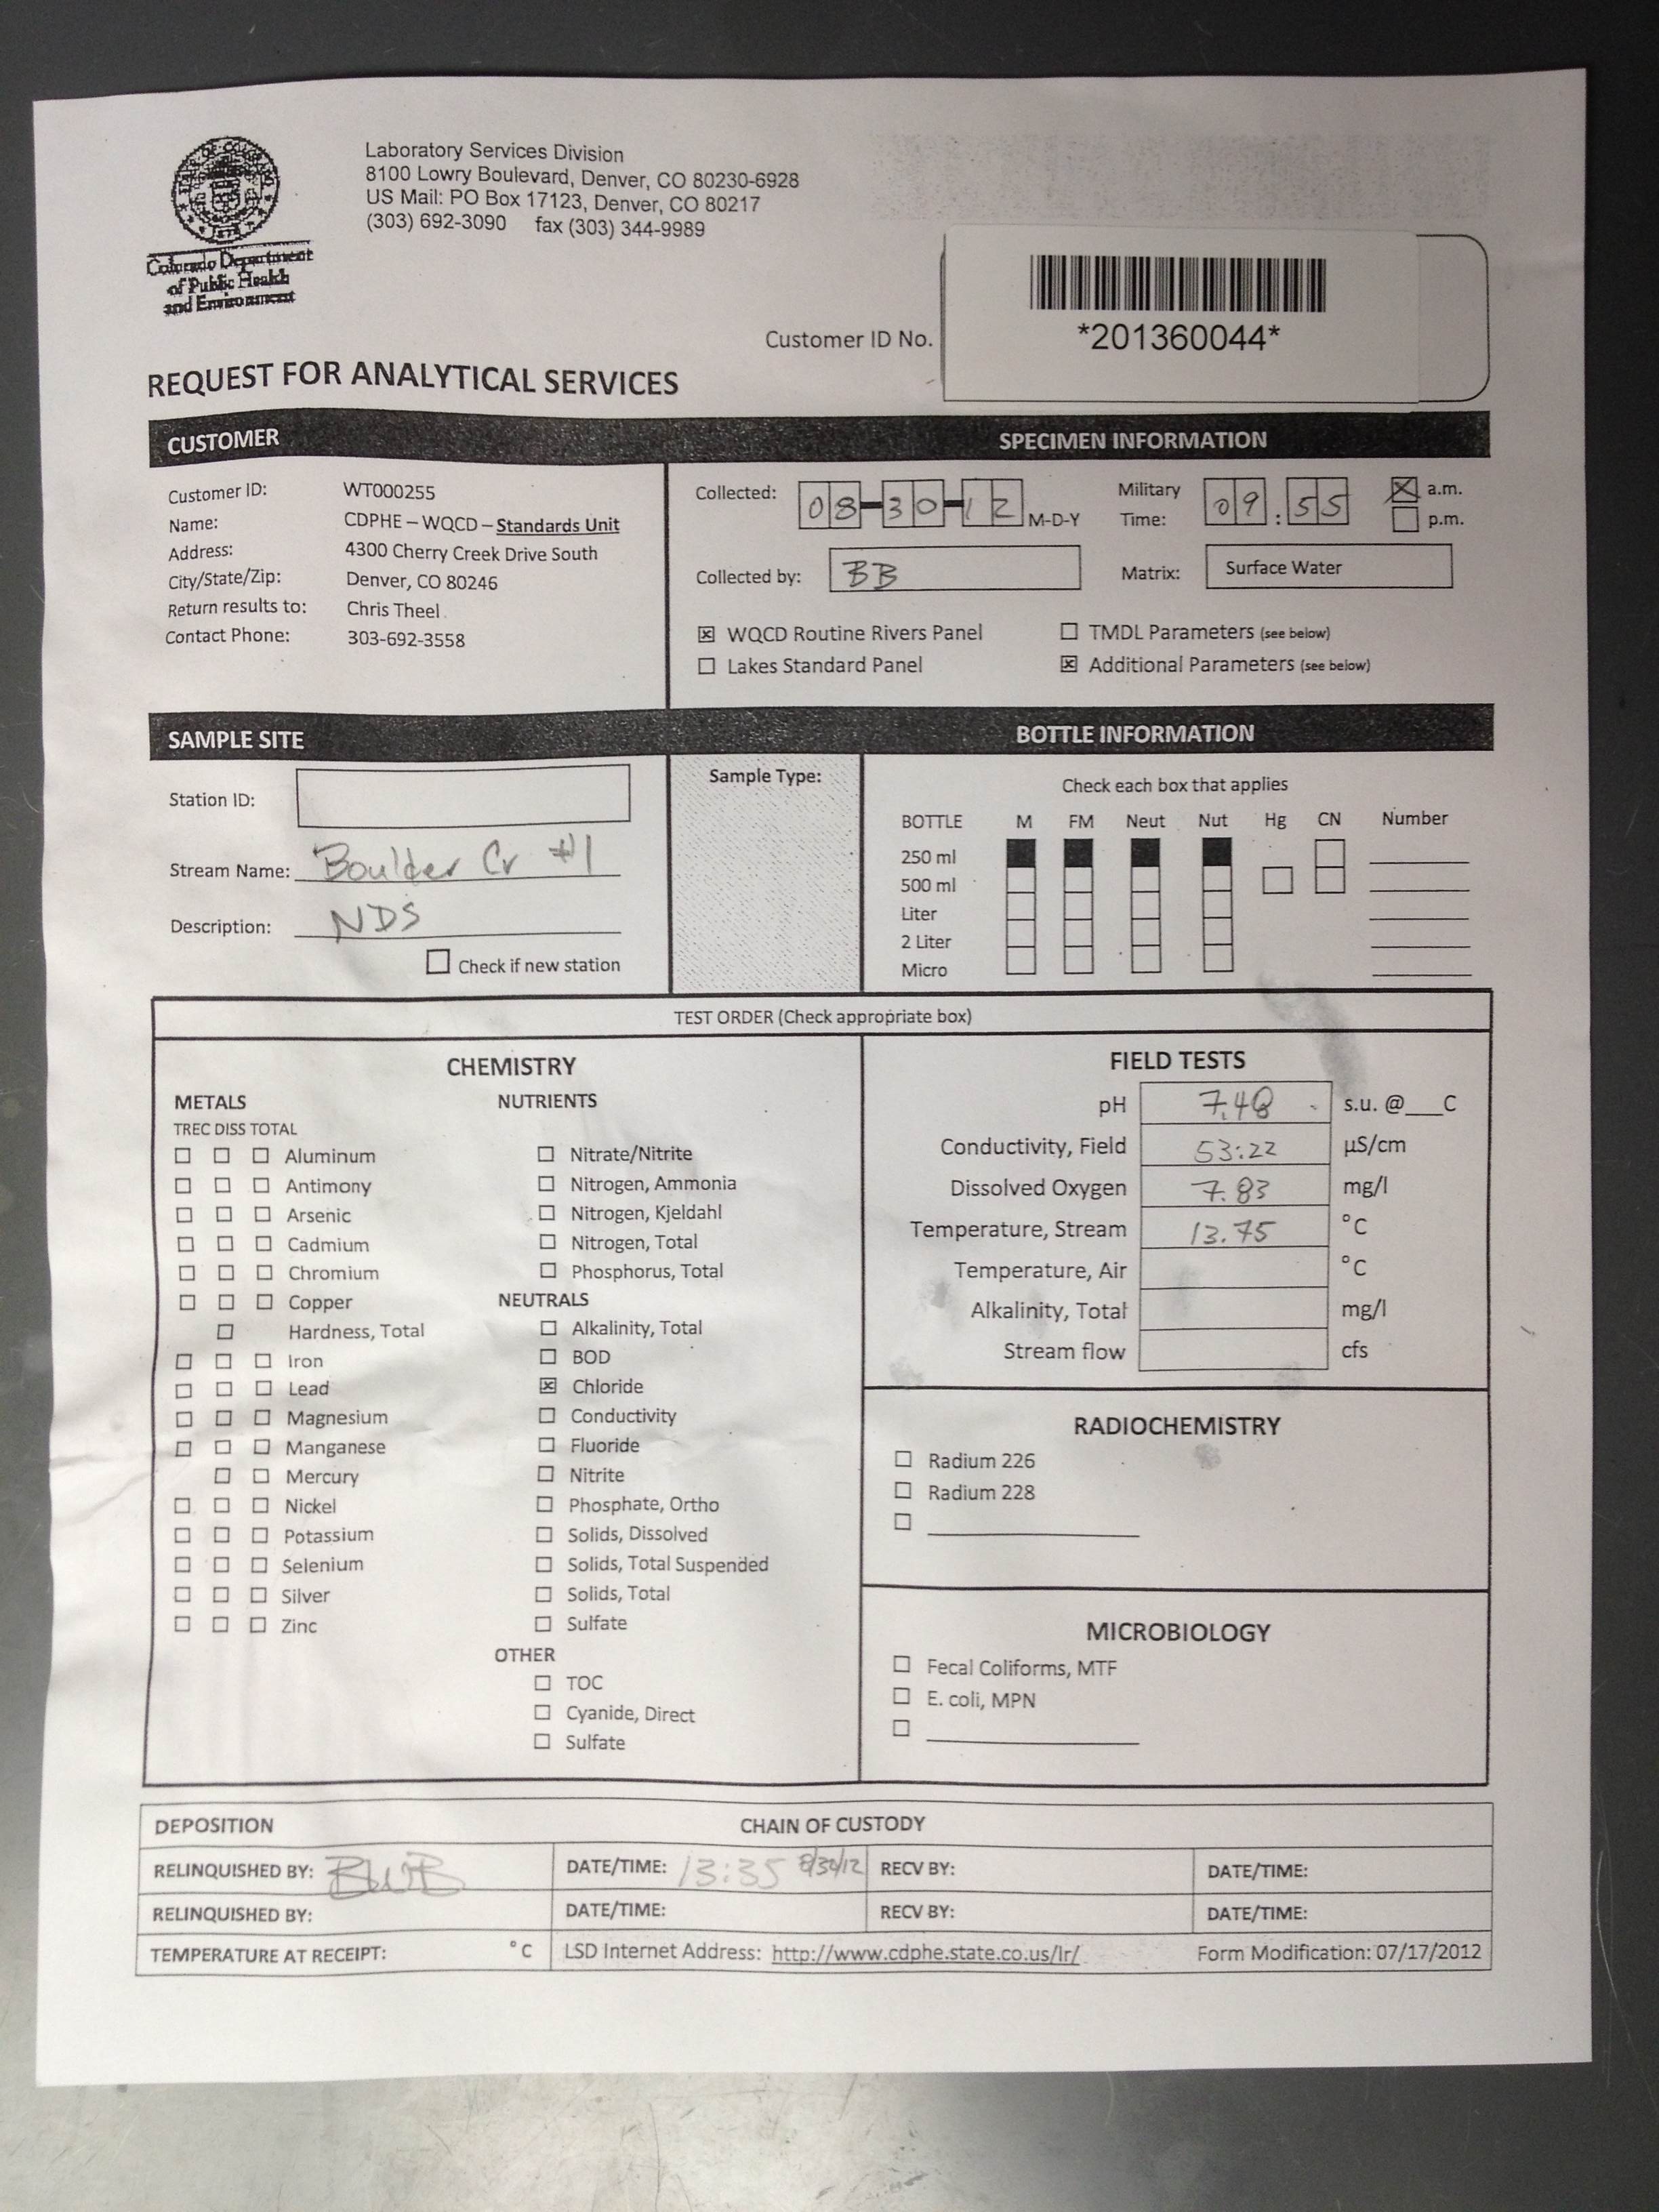 Laboratory Services Division
8100 Lowry Boulevard, Denver, CO 80230-6928
US Mail: PO Box 17123, Denver, CO 80217
(303) 692-3090 fax (303) 344-9989
Colorado Department
of Public Health
and Environment
Customer ID No.
*201360044*
REQUEST FOR ANALYTICAL SERVICES
CUSTOMER
Customer ID: WT000255
Name: CDPHE – WQCD – Standards Unit
Address: 4300 Cherry Creek Drive South
City/State/Zip: Denver, CO 80246
Return results to: Chris Theel
Contact Phone: 303-692-3558
SPECIMEN INFORMATION
Collected: 08-30-12 M-D-Y Military Time: 09:55 a.m. p.m.
Collected by: BB Matrix: Surface Water
WQCD Routine Rivers Panel TMDL Parameters (see below)
Lakes Standard Panel Additional Parameters (see below)
SAMPLE SITE
Station ID:
Stream Name: Boulder Cr #1
Description: NDS
Check if new station
Sample Type:
BOTTLE INFORMATION
Check each box that applies
BOTTLE M FM Neut Nut Hg CN Number
250 ml
500 ml
Liter
2 Liter
Micro
TEST ORDER (Check appropriate box)
CHEMISTRY
METALS
TREC DISS TOTAL
Aluminum
Antimony
Arsenic
Cadmium
Chromium
Copper
Hardness, Total
Iron
Lead
Magnesium
Manganese
Mercury
Nickel
Potassium
Selenium
Silver
Zinc
NUTRIENTS
Nitrate/Nitrite
Nitrogen, Ammonia
Nitrogen, Kjeldahl
Nitrogen, Total
Phosphorus, Total
NEUTRALS
Alkalinity, Total
BOD
Chloride
Conductivity
Fluoride
Nitrite
Phosphate, Ortho
Solids, Dissolved
Solids, Total Suspended
Solids, Total
Sulfate
OTHER
TOC
Cyanide, Direct
Sulfate
FIELD TESTS
pH 7.48 s.u. @___C
Conductivity, Field 53:22 µS/cm
Dissolved Oxygen 7.83 mg/l
Temperature, Stream 13.75 °C
Temperature, Air °C
Alkalinity, Total mg/l
Stream flow cfs
RADIOCHEMISTRY
Radium 226
Radium 228
MICROBIOLOGY
Fecal Coliforms, MTF
E. coli, MPN
DEPOSITION CHAIN OF CUSTODY
RELINQUISHED BY: BWB DATE/TIME: 13:35 8/30/12 RECV BY: DATE/TIME:
RELINQUISHED BY: DATE/TIME: RECV BY: DATE/TIME:
TEMPERATURE AT RECEIPT: °C LSD Internet Address: http://www.cdphe.state.co.us/lr/ Form Modification: 07/17/2012